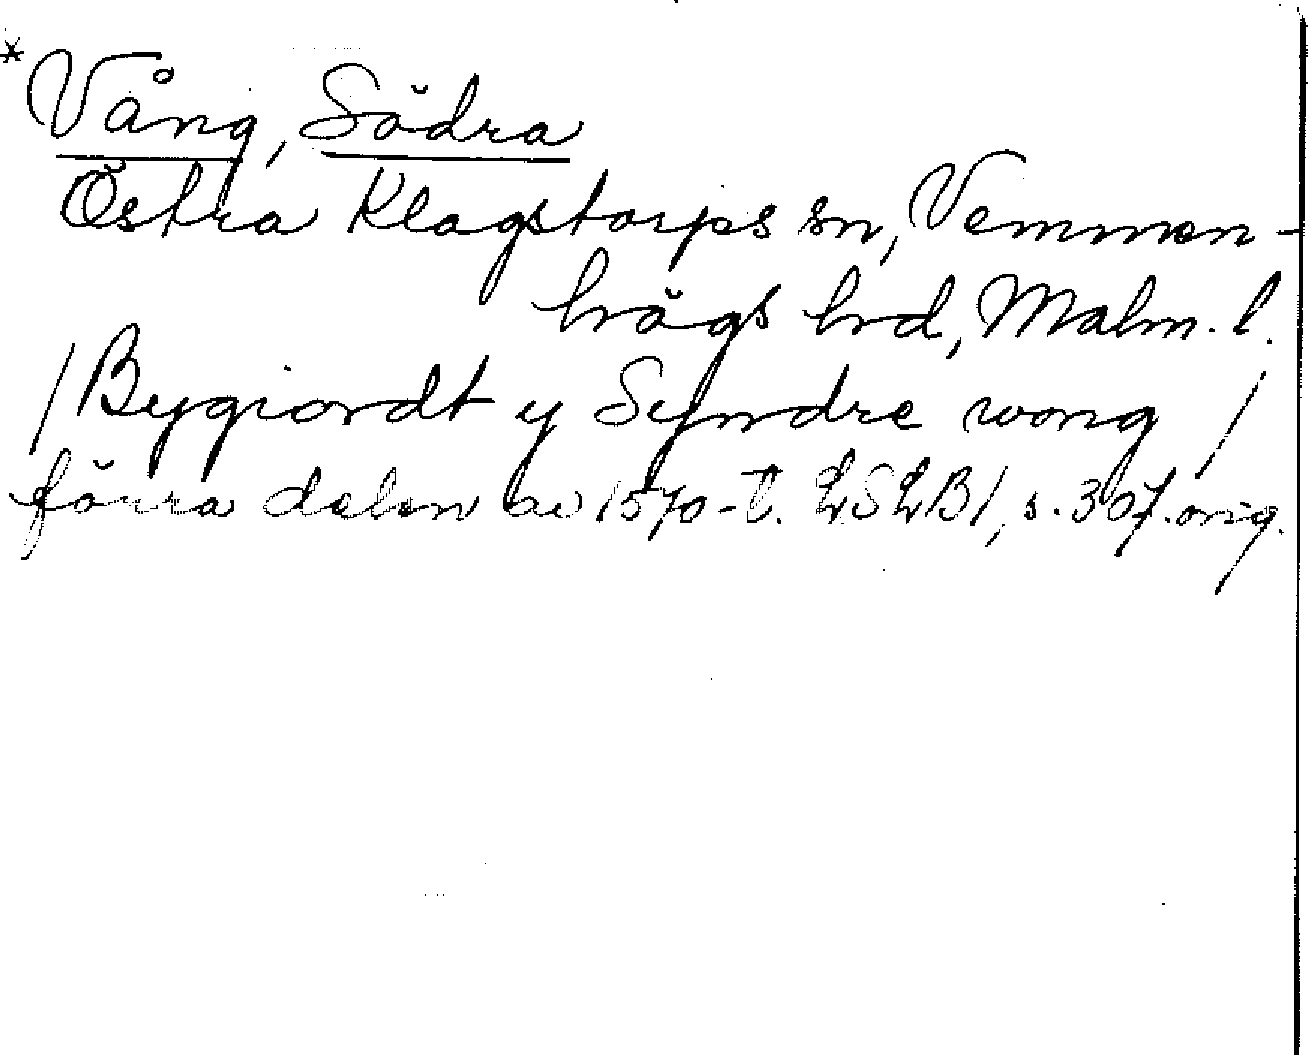 *Vång, Södra
Östra Klagstorps sn, Vemmen-
högs hrd, Malm. l.
/Bygiordt y Syndre wong/
förra delen av 1570-t. LSLB1, s. 307. orig.